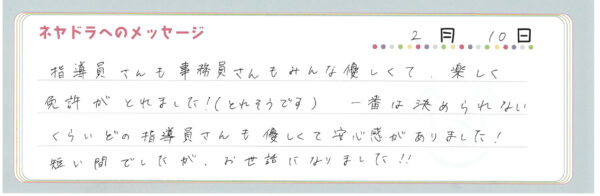 ネヤドラへのメッセージ
2月 10日
指導員さんも事務員さんもみんな優しくて、楽しく
免許がとれました!(とれそうです) 一番は決められない
くらいどの指導員さんも優しくて安心感がありました!
短い間でしたが、お世話になりました!!